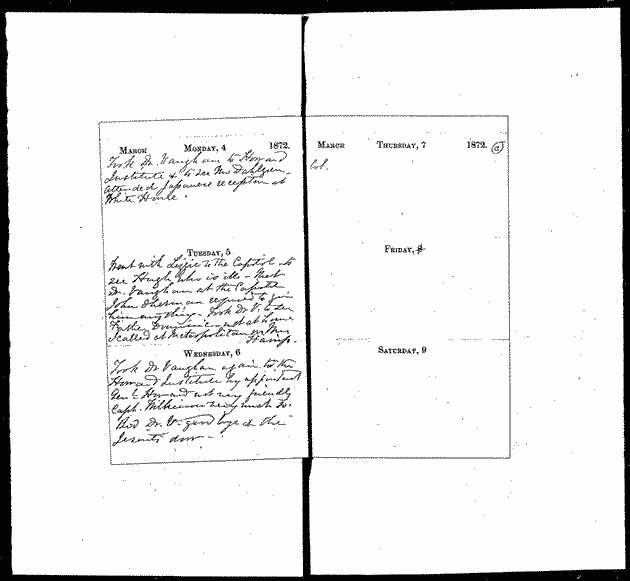 March Monday, 4 1872.
Took Dr. Vaughan to Howard
Institute & to see Mrs Dahlgren.
attended Japanese reception at
White House.
Tuesday, 5
Went with Lizzie to the Capitol to
see Hugh who is ill. Met
Dr. Vaughan at the Capitol
John Sherman refused to give
him anything. Took Dr. V. to see
Father not at home
called at Metropolitan on Mrs
Wednesday, 6
Took Dr Vaughan again to the
Howard Institute by appointment
Genl. Howard not very friendly
Capt. Wilkinson very much so.
Bid Dr. V. good bye at the
Jesuits' door.
March Thursday, 7 1872.
Col.
Friday, 8
Saturday, 9